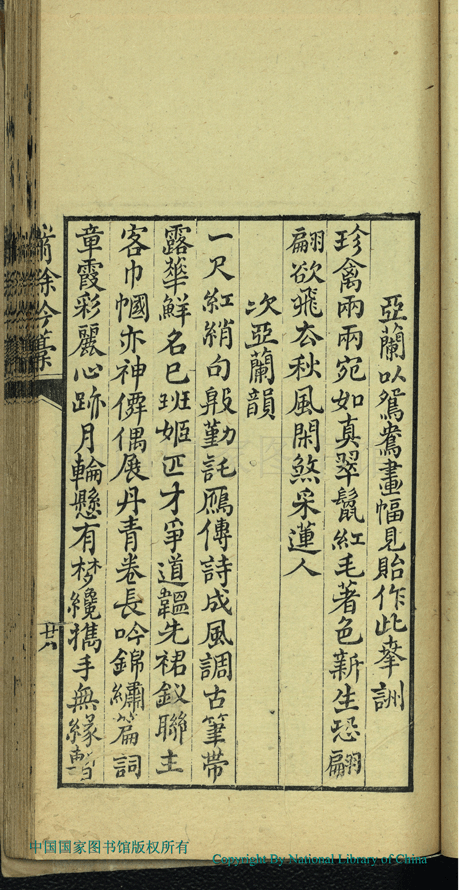 亞蘭以鴛鴦畫幅見貽作此奉詶
珍禽兩兩宛如真翠鬣紅毛著色新生恐翩
翩欲飛厺秋風閑煞采蓮人
次亞蘭韻
一尺紅綃句殷勤託鴈傳詩成風調古筆帶
露華鮮名已班姬匹才爭道韞先裙釵聯主
客巾幗亦神僊偶展丹青卷長吟錦繡篇詞
章霞彩麗心跡月輪懸有梦纔攜手無緣暫
餘吟稾
中国国家图书馆版权所有
Copyright By National Library of China